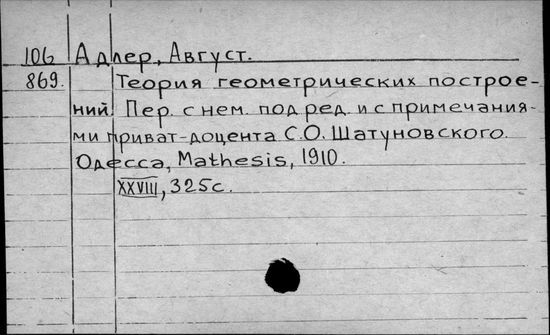 106 Адлер, Август.
869. Теория геометрических построе-
ний. Пер. с нем. под ред. и с примечания-
ми приват-доцента С.О. Шатуновского.
Одесса, Mathesis, 1910.
XXVIII, 325с.